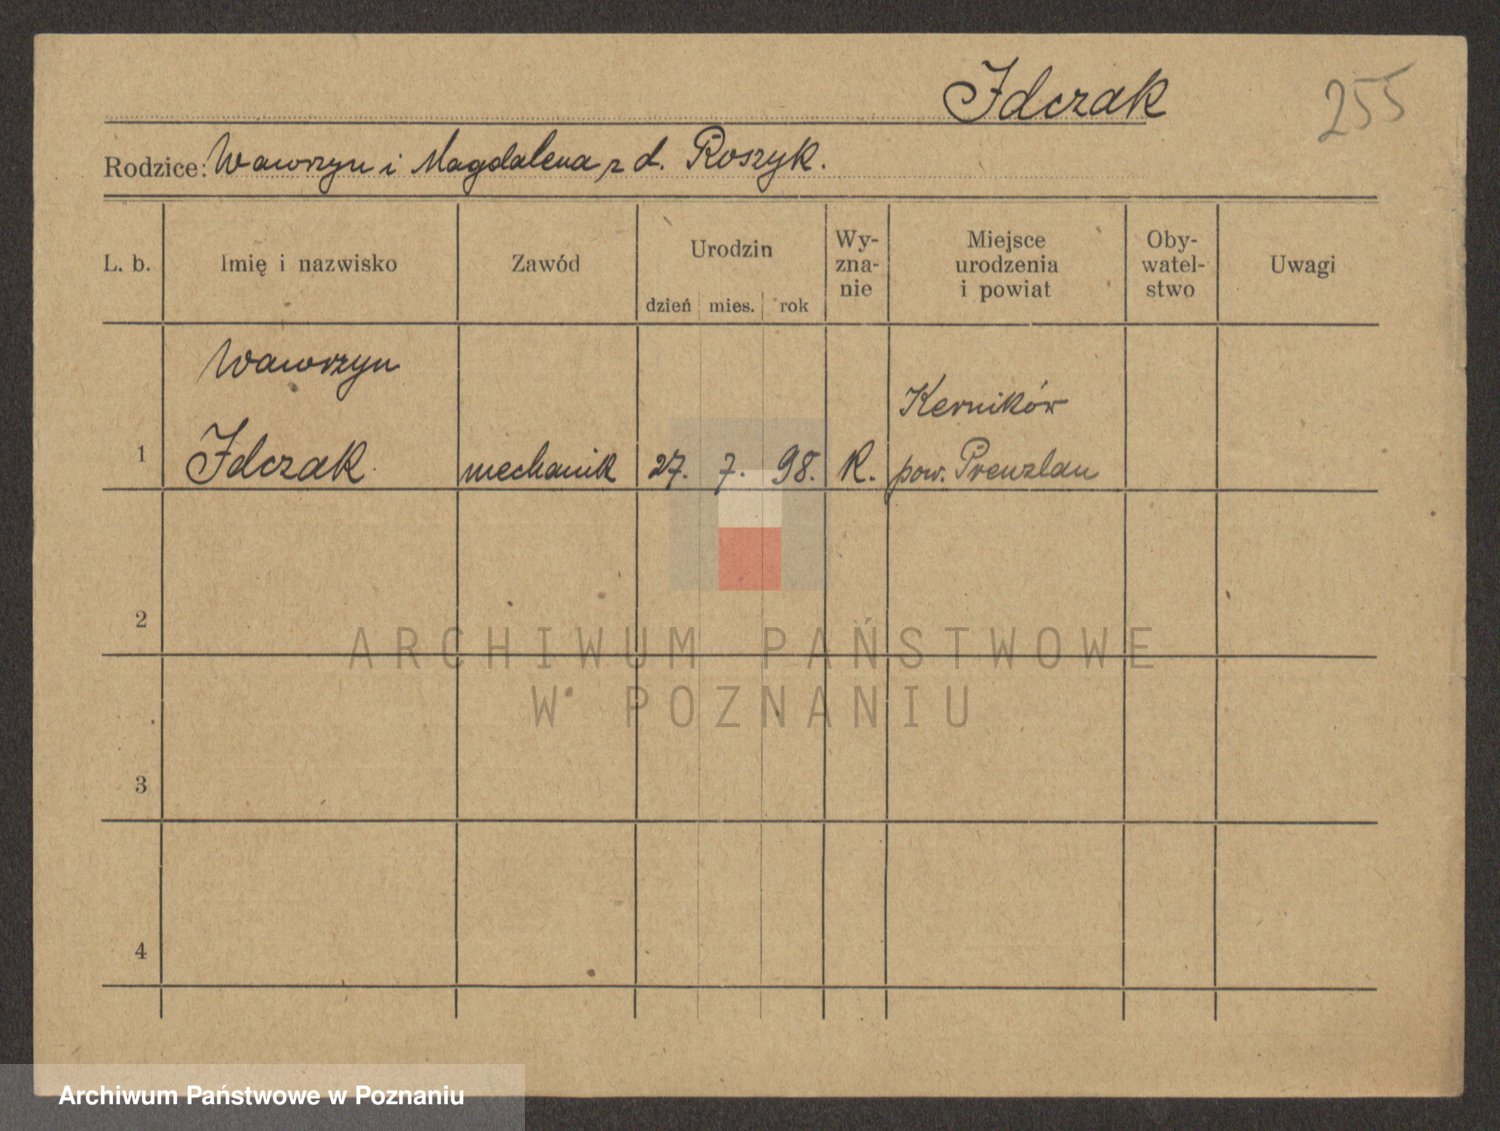 Idczak
255
Rodzice: Wawrzyn i Magdalena z d. Roszyk.
L. b.
Imię i nazwisko
Zawód
Urodzin
dzień mies. rok
Wy-
zna-
nie
Miejsce
urodzenia
i powiat
Oby-
watel-
stwo
Uwagi
Wawrzyn
Kerników
1 Idczak mechanik 27. 7. 98. R. pow. Prenzlau
2
ARCHIWUM PAŃSTWOWE
W POZNANIU
3
4
Archiwum Państwowe w Poznaniu